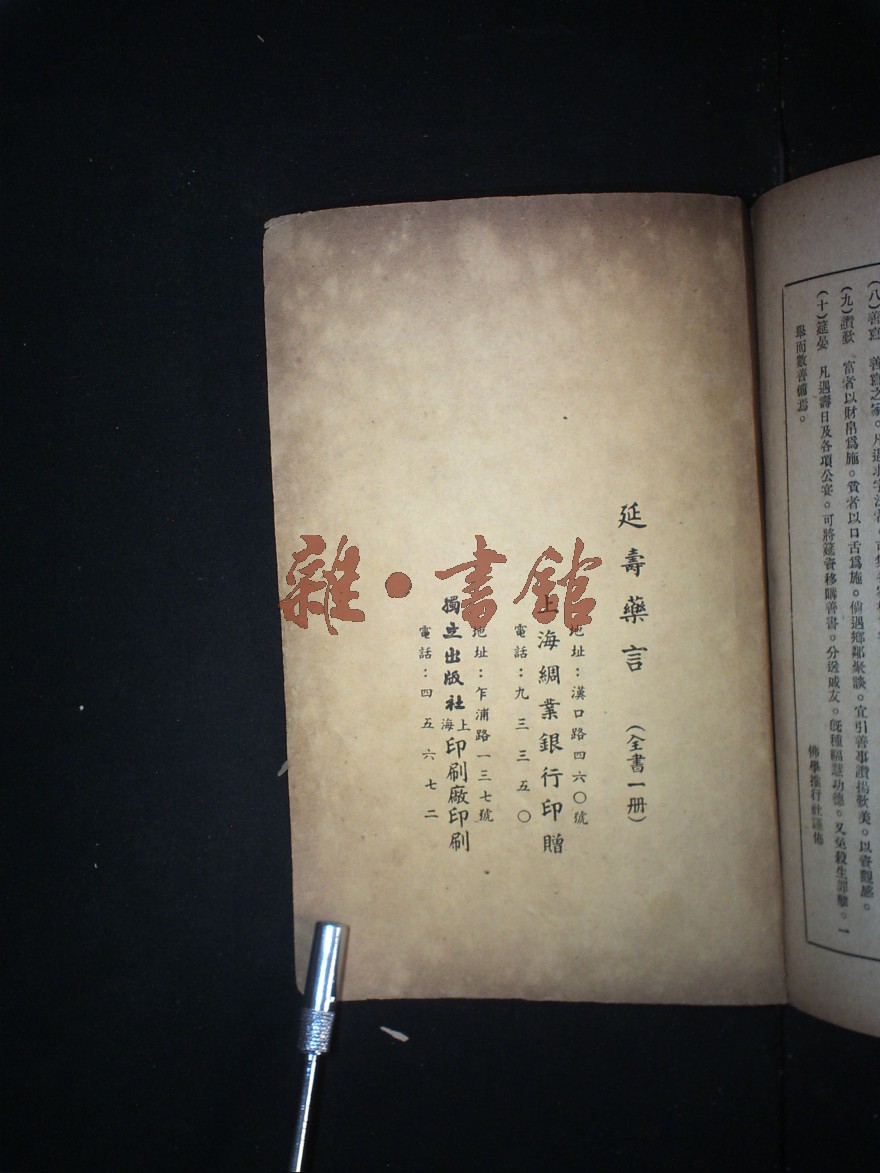 (八)善寫
(九)讚歎 富者以財帛爲施。貧者以口舌爲施。倘遇鄉鄰聚談。宜引善事讚揚歎美。以資觀感。
(十)筵宴 凡遇壽日及各項公宴。可將筵資移購善書。分送戚友。旣種福慧功德。又免殺生罪孽。一
舉而數善備焉。
佛學推行社謹佈
延壽藥言 (全書一册)
地址：漢口路四六〇號
上海綢業銀行印贈
電話：九三三五〇
地址：乍浦路一三七號
獨立出版社上海印刷廠印刷
電話：四五六七二
雜·書館